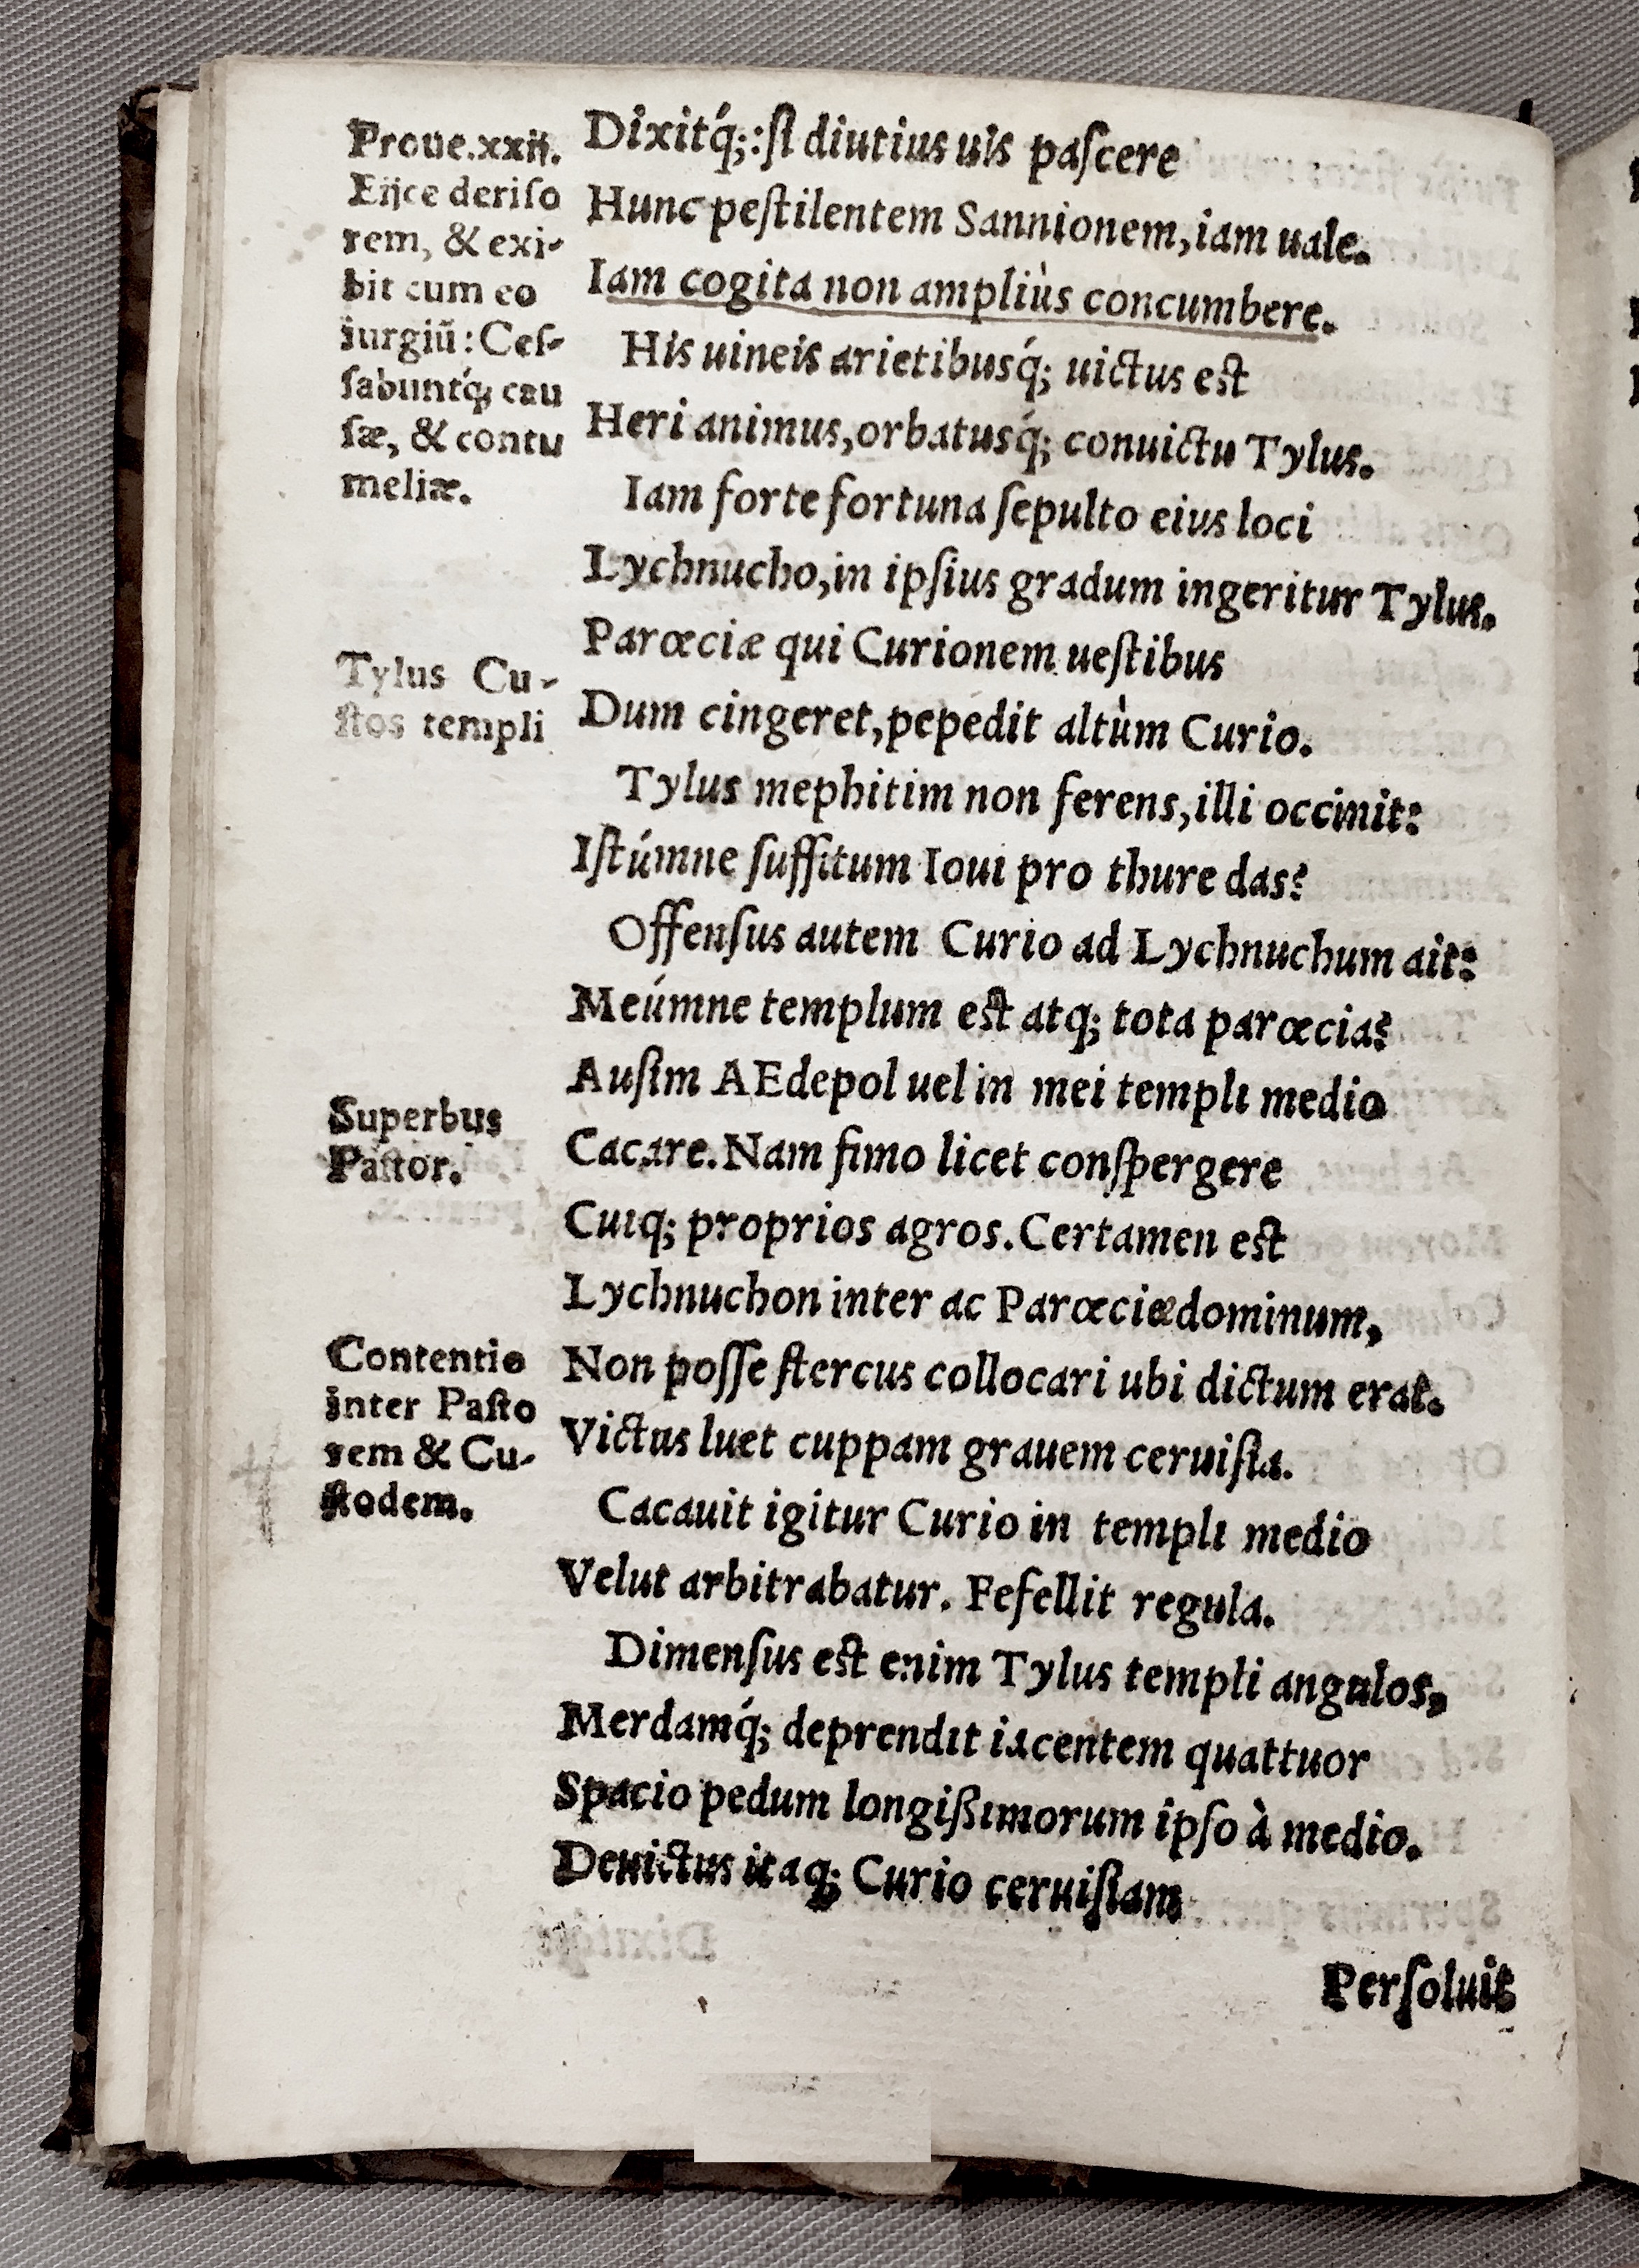 Proue.xxij.
Eijce deriſo
rem, & exi-
bit cum eo
iurgiũ: Ceſ-
ſabuntq́; cau
ſæ, & contu
meliæ.
Tylus Cu-
ſtos templi
Superbus
Paſtor.
Contentio
inter Paſto
rem & Cu-
ſtodem.
Dixitq́;: ſi diutius uis paſcere
Hunc peſtilentem Sannionem, iam uale.
Iam cogita non ampliùs concumbere.
His uineis arietibusq́; uictus eſt
Heri animus, orbatusq́; conuictu Tylus.
Iam forte fortuna ſepulto eius loci
Lychnucho, in ipſius gradum ingeritur Tylus.
Parœciæ qui Curionem ueſtibus
Dum cingeret, pepedit altùm Curio.
Tylus mephitim non ferens, illi occinit:
Iſtúmne ſuffitum Ioui pro thure das?
Offenſus autem Curio ad Lychnuchum ait:
Meúmne templum eſt atq; tota parœcia?
Auſim AEdepol uel in mei templi medio
Cacare. Nam fimo licet conſpergere
Cuiq; proprios agros. Certamen eſt
Lychnuchon inter ac Parœciæ dominum,
Non poſſe ſtercus collocari ubi dictum erat.
Victus luet cuppam grauem ceruiſia.
Cacauit igitur Curio in templi medio
Velut arbitrabatur. Fefellit regula.
Dimenſus eſt enim Tylus templi angulos,
Merdamq́; deprendit iacentem quattuor
Spacio pedum longißimorum ipſo à medio.
Deuictus itaq; Curio ceruiſiam
Perſoluit